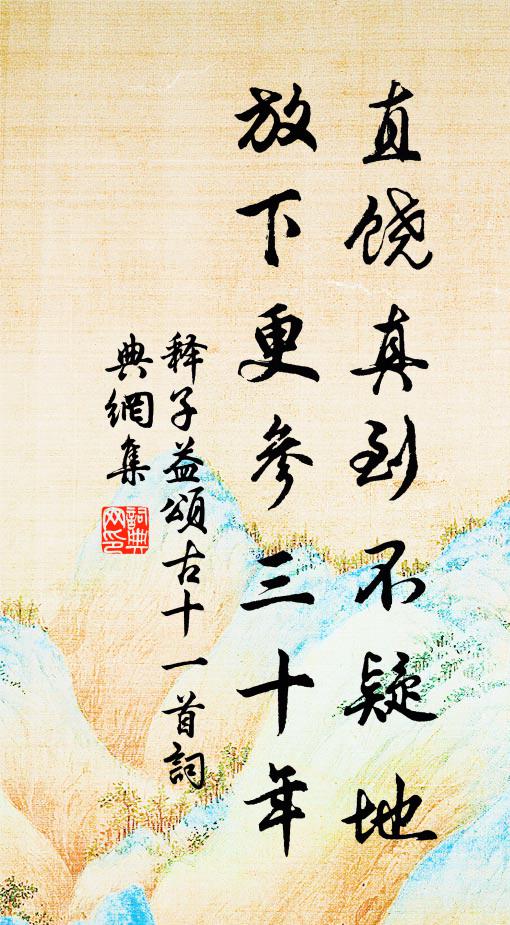 直饶真到不疑地
放下更参三十年
释子益颂古十一首詞
典網集
詞典
网印